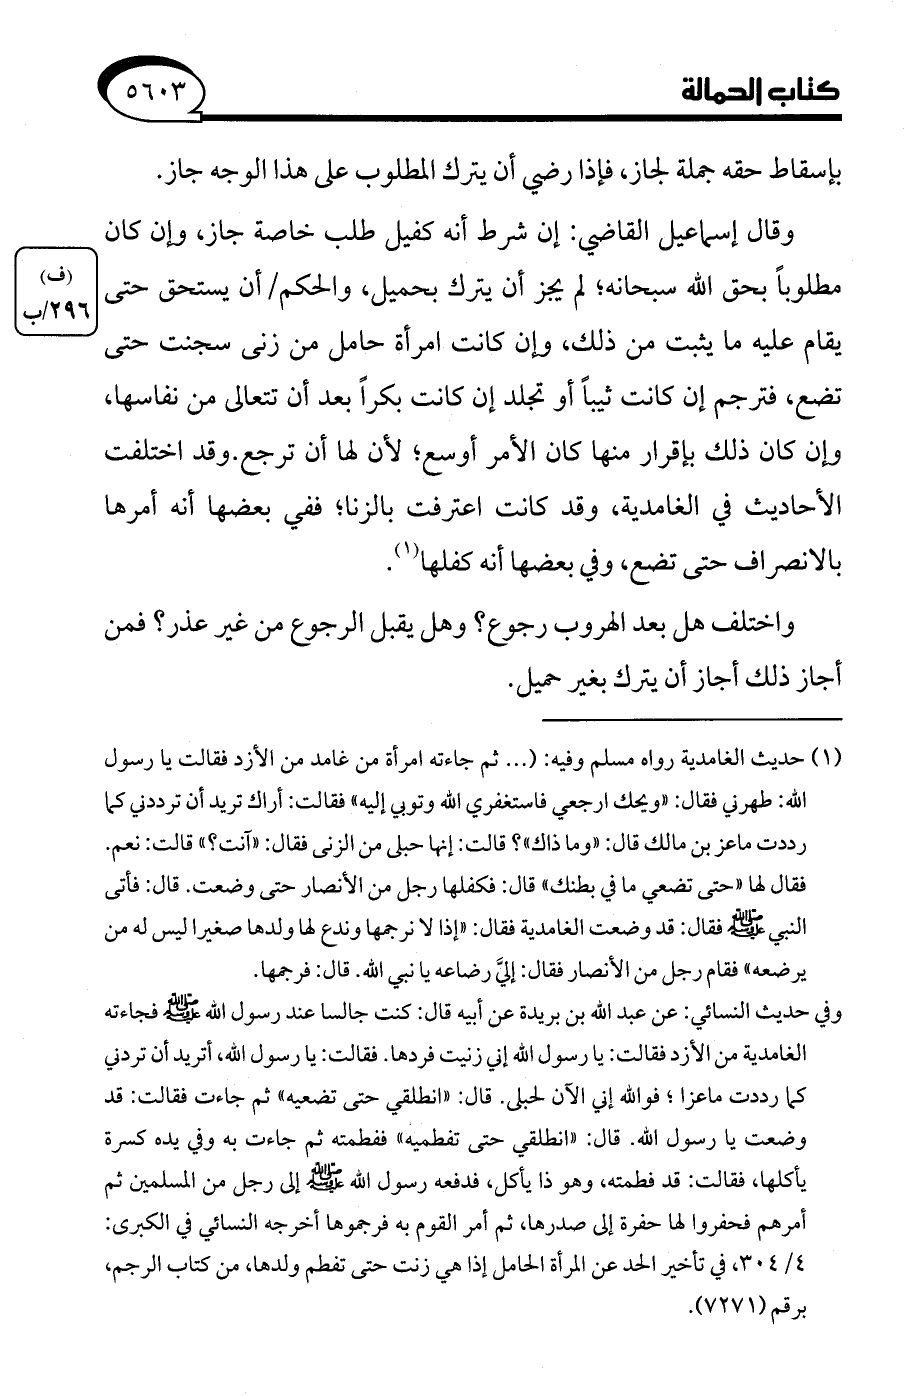 كتاب الحمالة
٥٦٠٣
بإسقاط حقه جملة لجاز، فإذا رضي أن يترك المطلوب على هذا الوجه جاز.
وقال إسماعيل القاضي: إن شرط أنه كفيل طلب خاصة جاز، وإن كان
مطلوباً بحق الله سبحانه؛ لم يجز أن يترك بحميل، والحكم/ أن يستحق حتى
(ف)
٢٩٦/ب
يقام عليه ما يثبت من ذلك، وإن كانت امرأة حامل من زنى سجنت حتى
تضع، فترجم إن كانت ثيباً أو تجلد إن كانت بكراً بعد أن تتعالى من نفاسها،
وإن كان ذلك بإقرار منها كان الأمر أوسع؛ لأن لها أن ترجع.وقد اختلفت
الأحاديث في الغامدية، وقد كانت اعترفت بالزنا؛ ففي بعضها أنه أمرها
بالانصراف حتى تضع، وفي بعضها أنه كفلها(١).
واختلف هل بعد الهروب رجوع؟ وهل يقبل الرجوع من غير عذر؟ فمن
أجاز ذلك أجاز أن يترك بغير حميل.
(١) حديث الغامدية رواه مسلم وفيه: (... ثم جاءته امرأة من غامد من الأزد فقالت يا رسول
الله: طهرني فقال: «ويحك ارجعي فاستغفري الله وتوبي إليه» فقالت: أراك تريد أن ترددني كما
رددت ماعز بن مالك قال: «وما ذاك»؟ قالت: إنها حبلى من الزنى فقال: «آنت؟» قالت: نعم.
فقال لها «حتى تضعي ما في بطنك» قال: فكفلها رجل من الأنصار حتى وضعت. قال: فأتى
النبي ﷺ فقال: قد وضعت الغامدية فقال: «إذا لا نرجمها وندع لها ولدها صغيرا ليس له من
يرضعه» فقام رجل من الأنصار فقال: إليَّ رضاعه يا نبي الله. قال: فرجمها.
وفي حديث النسائي: عن عبد الله بن بريدة عن أبيه قال: كنت جالسا عند رسول الله ﷺ فجاءته
الغامدية من الأزد فقالت: يا رسول الله إني زنيت فردها. فقالت: يا رسول الله، أتريد أن تردني
كما رددت ماعزا ؛ فوالله إني الآن لحبلى. قال: «انطلقي حتى تضعيه» ثم جاءت فقالت: قد
وضعت يا رسول الله. قال: «انطلقي حتى تفطميه» ففطمته ثم جاءت به وفي يده كسرة
يأكلها، فقالت: قد فطمته، وهو ذا يأكل، فدفعه رسول الله ﷺ إلى رجل من المسلمين ثم
أمرهم فحفروا لها حفرة إلى صدرها، ثم أمر القوم به فرجموها أخرجه النسائي في الكبرى:
٤/ ٣٠٤، في تأخير الحد عن المرأة الحامل إذا هي زنت حتى تفطم ولدها، من كتاب الرجم،
برقم (٧٢٧١).